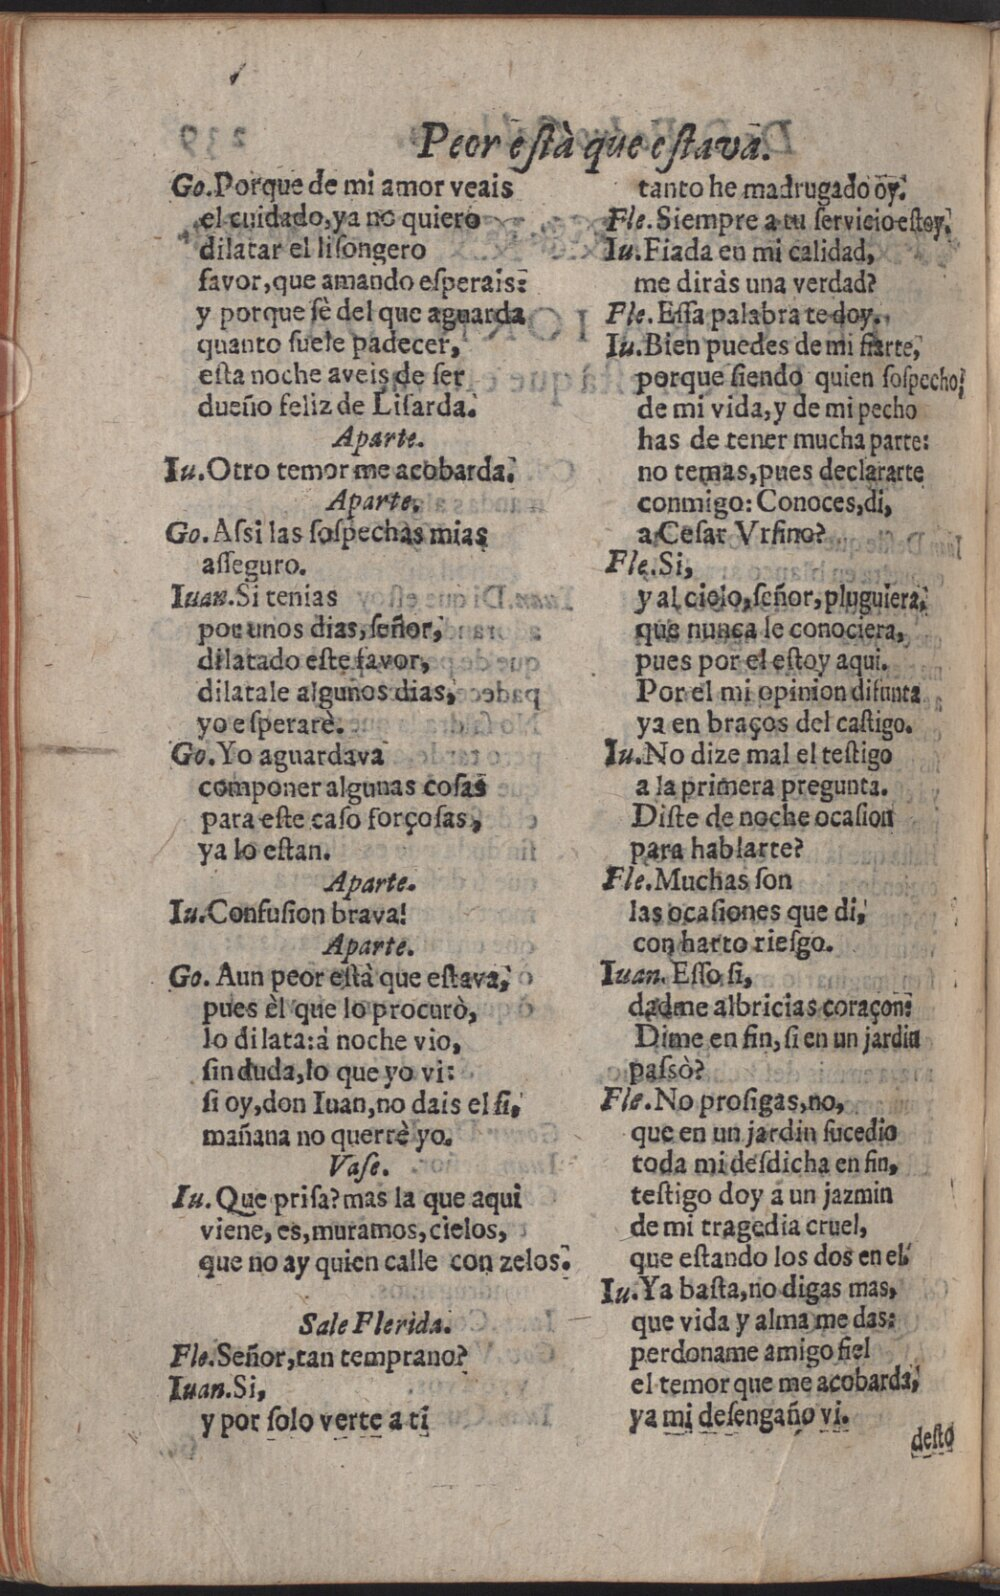 Peor està que estava.
Go.Porque de mi amor veais
el cuidado,ya no quiero
dilatar el lisongero
favor,que amando esperais:
y porque sè del que aguarda
quanto suele padecer,
esta noche aveis de ser
dueño feliz de Lisarda.
Aparte.
Iu.Otro temor me acobarda.
Aparte.
Go. Assi las sospechas mias
asseguro.
Iuan.Si tenias
por unos dias,señor,
dilatado este favor,
dilatale algunos dias,
yo esperarè.
Go.Yo aguardava
componer algunas cosas
para este caso forçosas,
ya lo estan.
Aparte.
Iu.Confusion brava!
Aparte.
Go. Aun peor està que estava,
pues èl que lo procurò,
lo dilata:à noche vio,
sin duda,lo que yo vi:
si oy,don Iuan,no dais el si,
mañana no querrè yo.
Vase.
Iu. Que prisa?mas la que aqui
viene, es,muramos,cielos,
que no ay quien calle con zelos.
Sale Flerida.
Fle.Señor,tan temprano?
Iuan.Si,
y por solo verte a ti
tanto he madrugado oy.
Fle.Siempre a tu servicio estoy.
Iu.Fiada en mi calidad,
me diràs una verdad?
Fle.Essa palabra te doy.
Iu.Bien puedes de mi fiarte,
porque siendo quien sospecho,
de mi vida,y de mi pecho
has de tener mucha parte:
no temas,pues declararte
conmigo: Conoces,di,
a Cesar Vrsino?
Fle.Si,
y al cielo,señor,pluguiera,
que nunca le conociera,
pues por el estoy aqui.
Por el mi opinion difunta
ya en braços del castigo.
Iu.No dize mal el testigo
a la primera pregunta.
Diste de noche ocasion
para hablarte?
Fle.Muchas son
las ocasiones que di,
con harto riesgo.
Iuan. Esso si,
dadme albricias coraçon:
Dime en fin, si en un jardin
passò?
Fle.No prosigas,no,
que en un jardin sucedio
toda mi desdicha en fin,
testigo doy a un jazmin
de mi tragedia cruel,
que estando los dos en el.
Iu.Ya basta,no digas mas,
que vida y alma me das:
perdoname amigo fiel
el temor que me acobarda,
ya mi desengaño vi.
desto